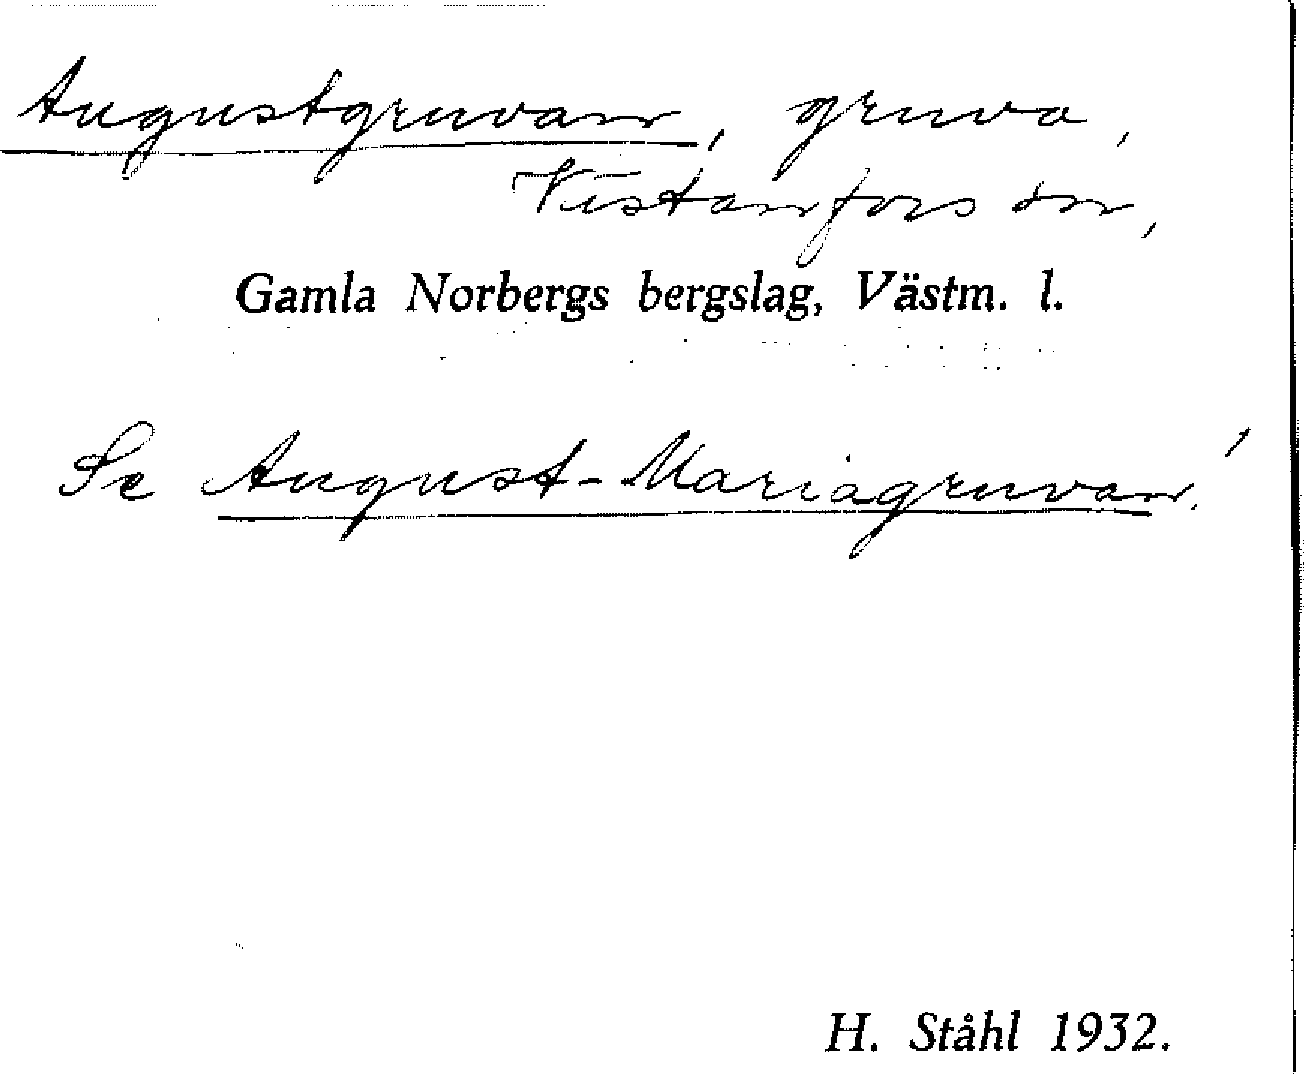 Augustgruvan, gruva,
Västanfors sn,
Gamla Norbergs bergslag, Västm. l.
Se August-Mariagruvan!
H. Ståhl 1932.